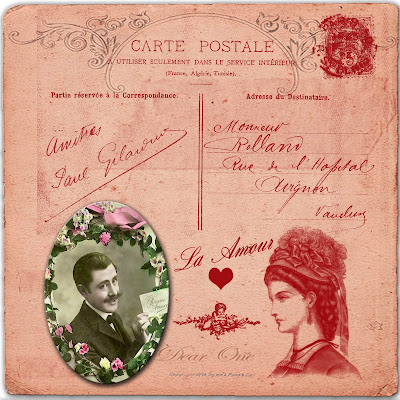 CARTE POSTALE
À UTILISER SEULEMENT DANS LE SERVICE INTÉRIEUR
(France, Algérie, Tunisie).
Partie réservée à la Correspondance.
Adresse du Destinataire.
Amitiés
Paul
Monsieur
Rolland
Rue de l'Hopital
Avignon
Vaucluse
La Amour
Dear One